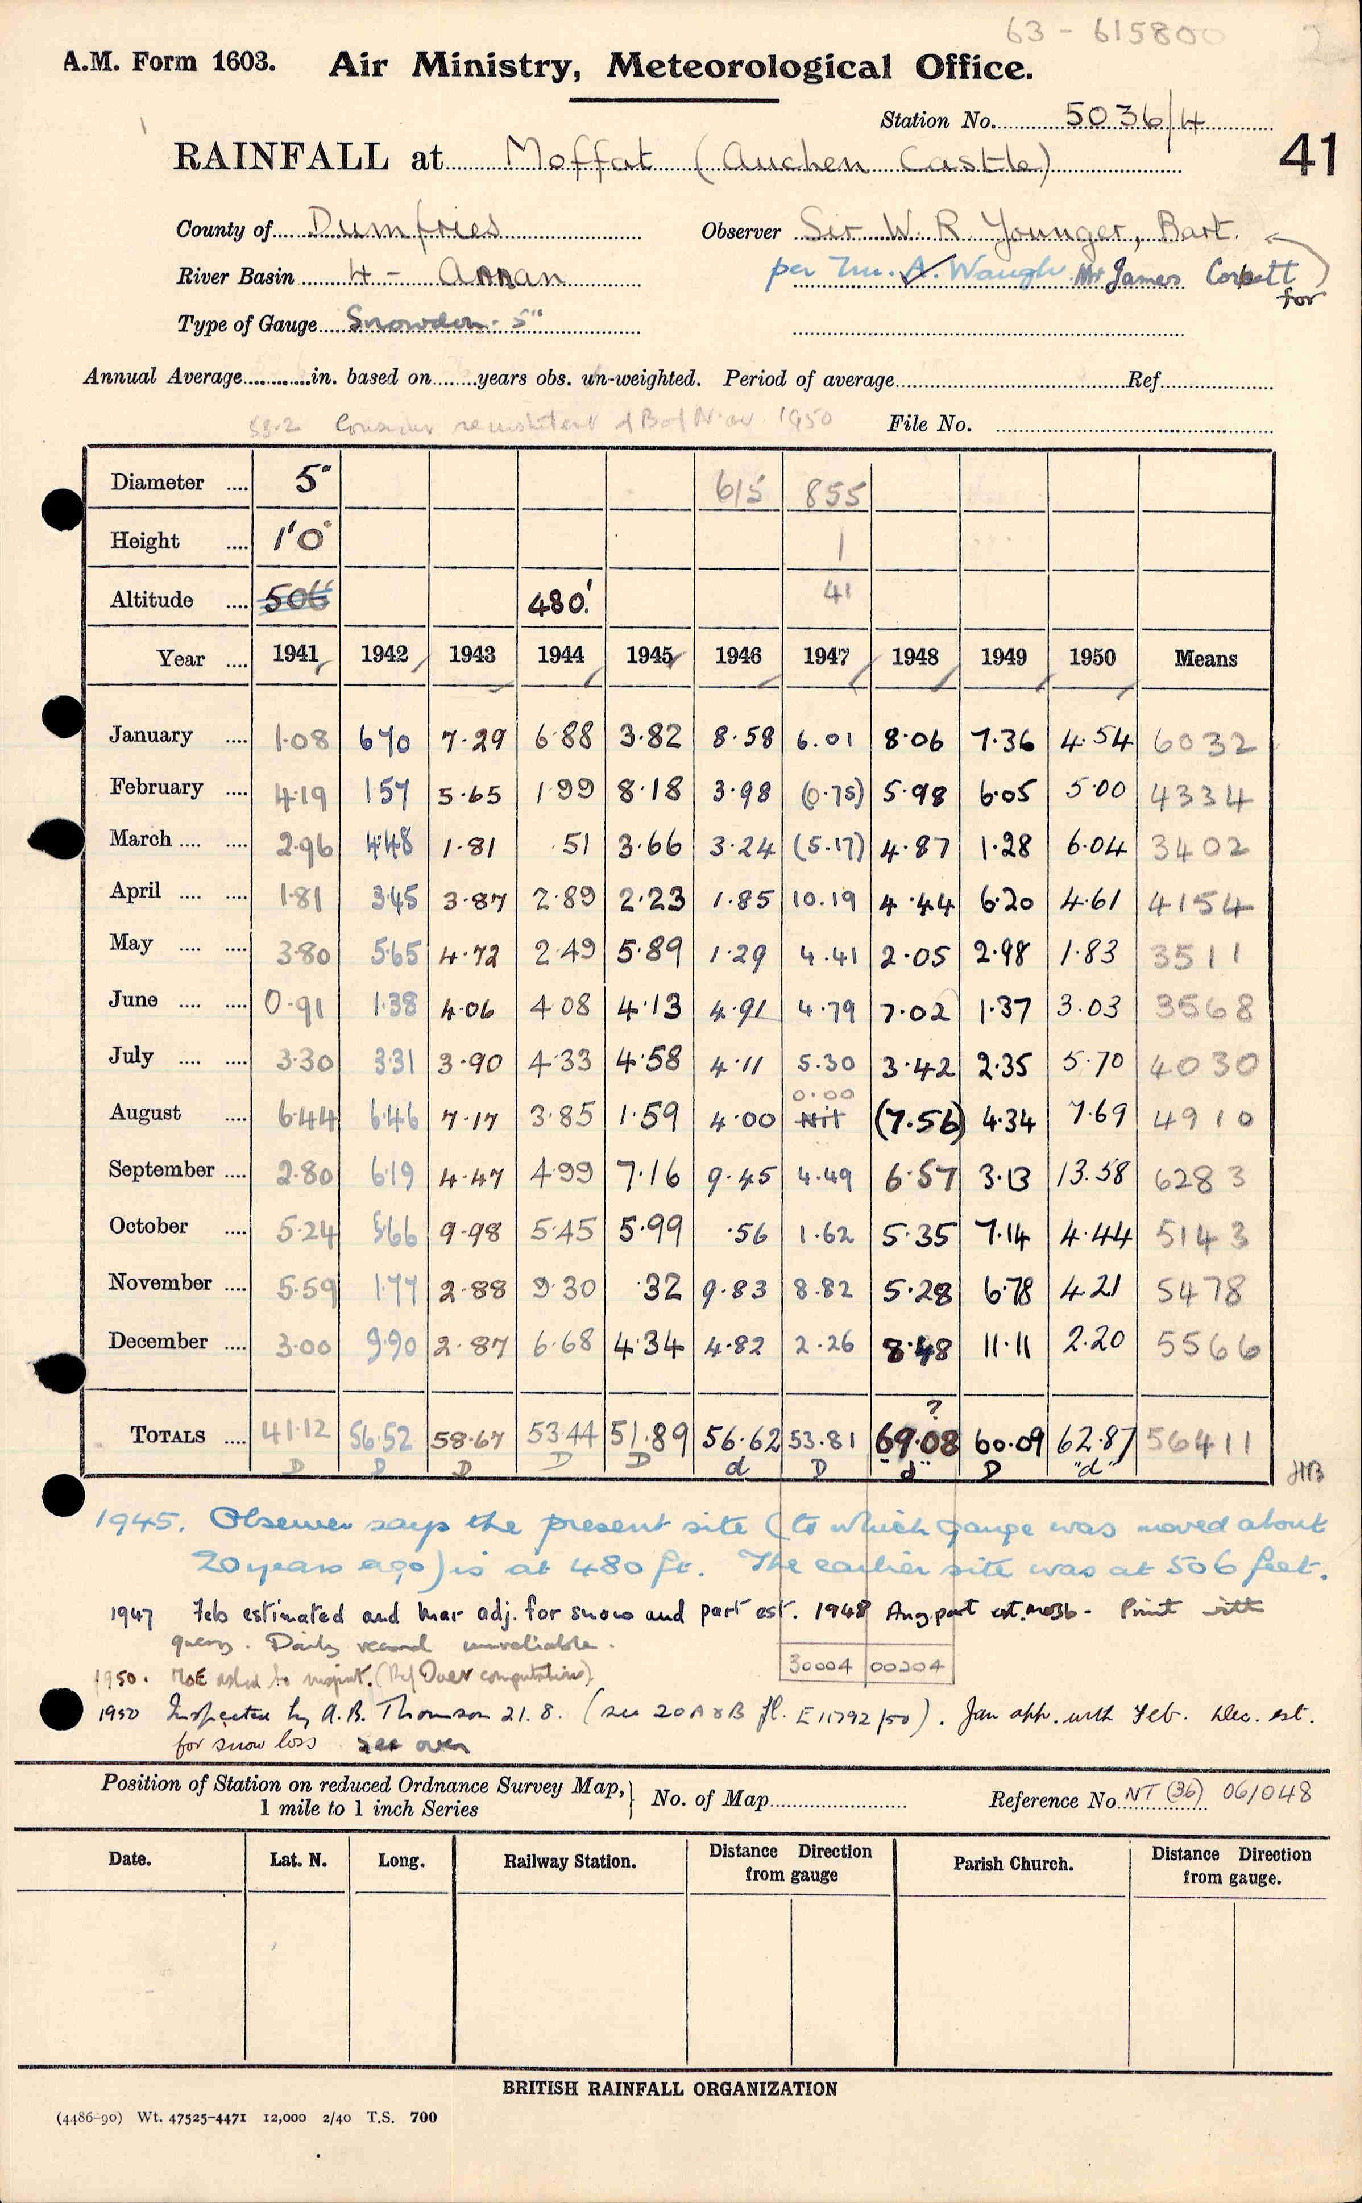 63 - 615800 2
A.M. Form 1603. Air Ministry, Meteorological Office.
Station No. 5036/4
RAINFALL at Moffat (Auchen Castle) 41
County of Dumfries Observer Sir W. R Younger, Bart.
River Basin 4 - Annan per Mr. A. Waugh Mr James Corbett
for
Type of Gauge Snowdon - 5"
Annual Average in. based on years obs. un-weighted. Period of average Ref.
1950 File No.
Diameter 5" 615 855
Height 1'0" 1
Altitude 506 480' 41
Year 1941 1942 1943 1944 1945 1946 1947 1948 1949 1950 Means
January 1·08 670 7·29 6·88 3·82 8·58 6.01 8·06 7·36 4·54 6032
February 4·19 157 5·65 1·99 8·18 3·98 (0·75) 5·98 6·05 5·00 4334
March 2·96 4·48 1·81 ·51 3·66 3·24 (5·17) 4·87 1·28 6·04 3402
April 1·81 3·45 3·87 2·89 2·23 1·85 10.19 4·44 6·20 4·61 4154
May 3·80 5·65 4·72 2·49 5·89 1·29 4·41 2·05 2·98 1·83 3511
June 0·91 1·38 4·06 4·08 4·13 4·91 4·79 7·02 1·37 3·03 3568
July 3·30 3·31 3·90 4·33 4·58 4·11 5.30 3·42 2·35 5·70 4030
0·00
August 6·44 6·46 7·17 3·85 1·59 4·00 Nil (7·56) 4·34 7·69 4910
September 2·80 6·19 4·47 4·99 7·16 9·45 4·49 6·57 3·13 13·58 6283
October 5·24 5·66 9·98 5·45 5·99 ·56 1·62 5·35 7·14 4·44 5143
November 5·59 1·77 2·88 9·30 ·32 9·83 8·82 5·28 6·78 4·21 5478
December 3·00 9·90 2·87 6·68 4·34 4·82 2·26 8·48 11·11 2·20 5566
?
TOTALS 41·12 56·52 58·67 53·44 51·89 56·62 53·81 69·08 60·09 62·87 56411
D D D D D d D "d" D "d" JHB
1945. Observer says the present site (to which gauge was moved about
20 years ago) is at 480 ft. The earlier site was at 506 feet.
1947 Feb estimated and Mar adj. for snow and part est. 1948 Aug part est. Print with
query. Daily record unreliable.
30004 00204
1950. MoE asked to inspect. (Ref Over computation)
1950 Inspected by A. B. Thomson 21. 8. (see 20 A & B fl. E 11792/50). Jan app. with Feb. Dec. est.
for snow loss See over
Position of Station on reduced Ordnance Survey Map, 1 mile to 1 inch Series } No. of Map Reference No. NT (36) 061048
Date. Lat. N. Long. Railway Station. Distance Direction from gauge Parish Church. Distance Direction from gauge.
BRITISH RAINFALL ORGANIZATION
(4486-90) Wt. 47525-4471 12,000 2/40 T.S. 700